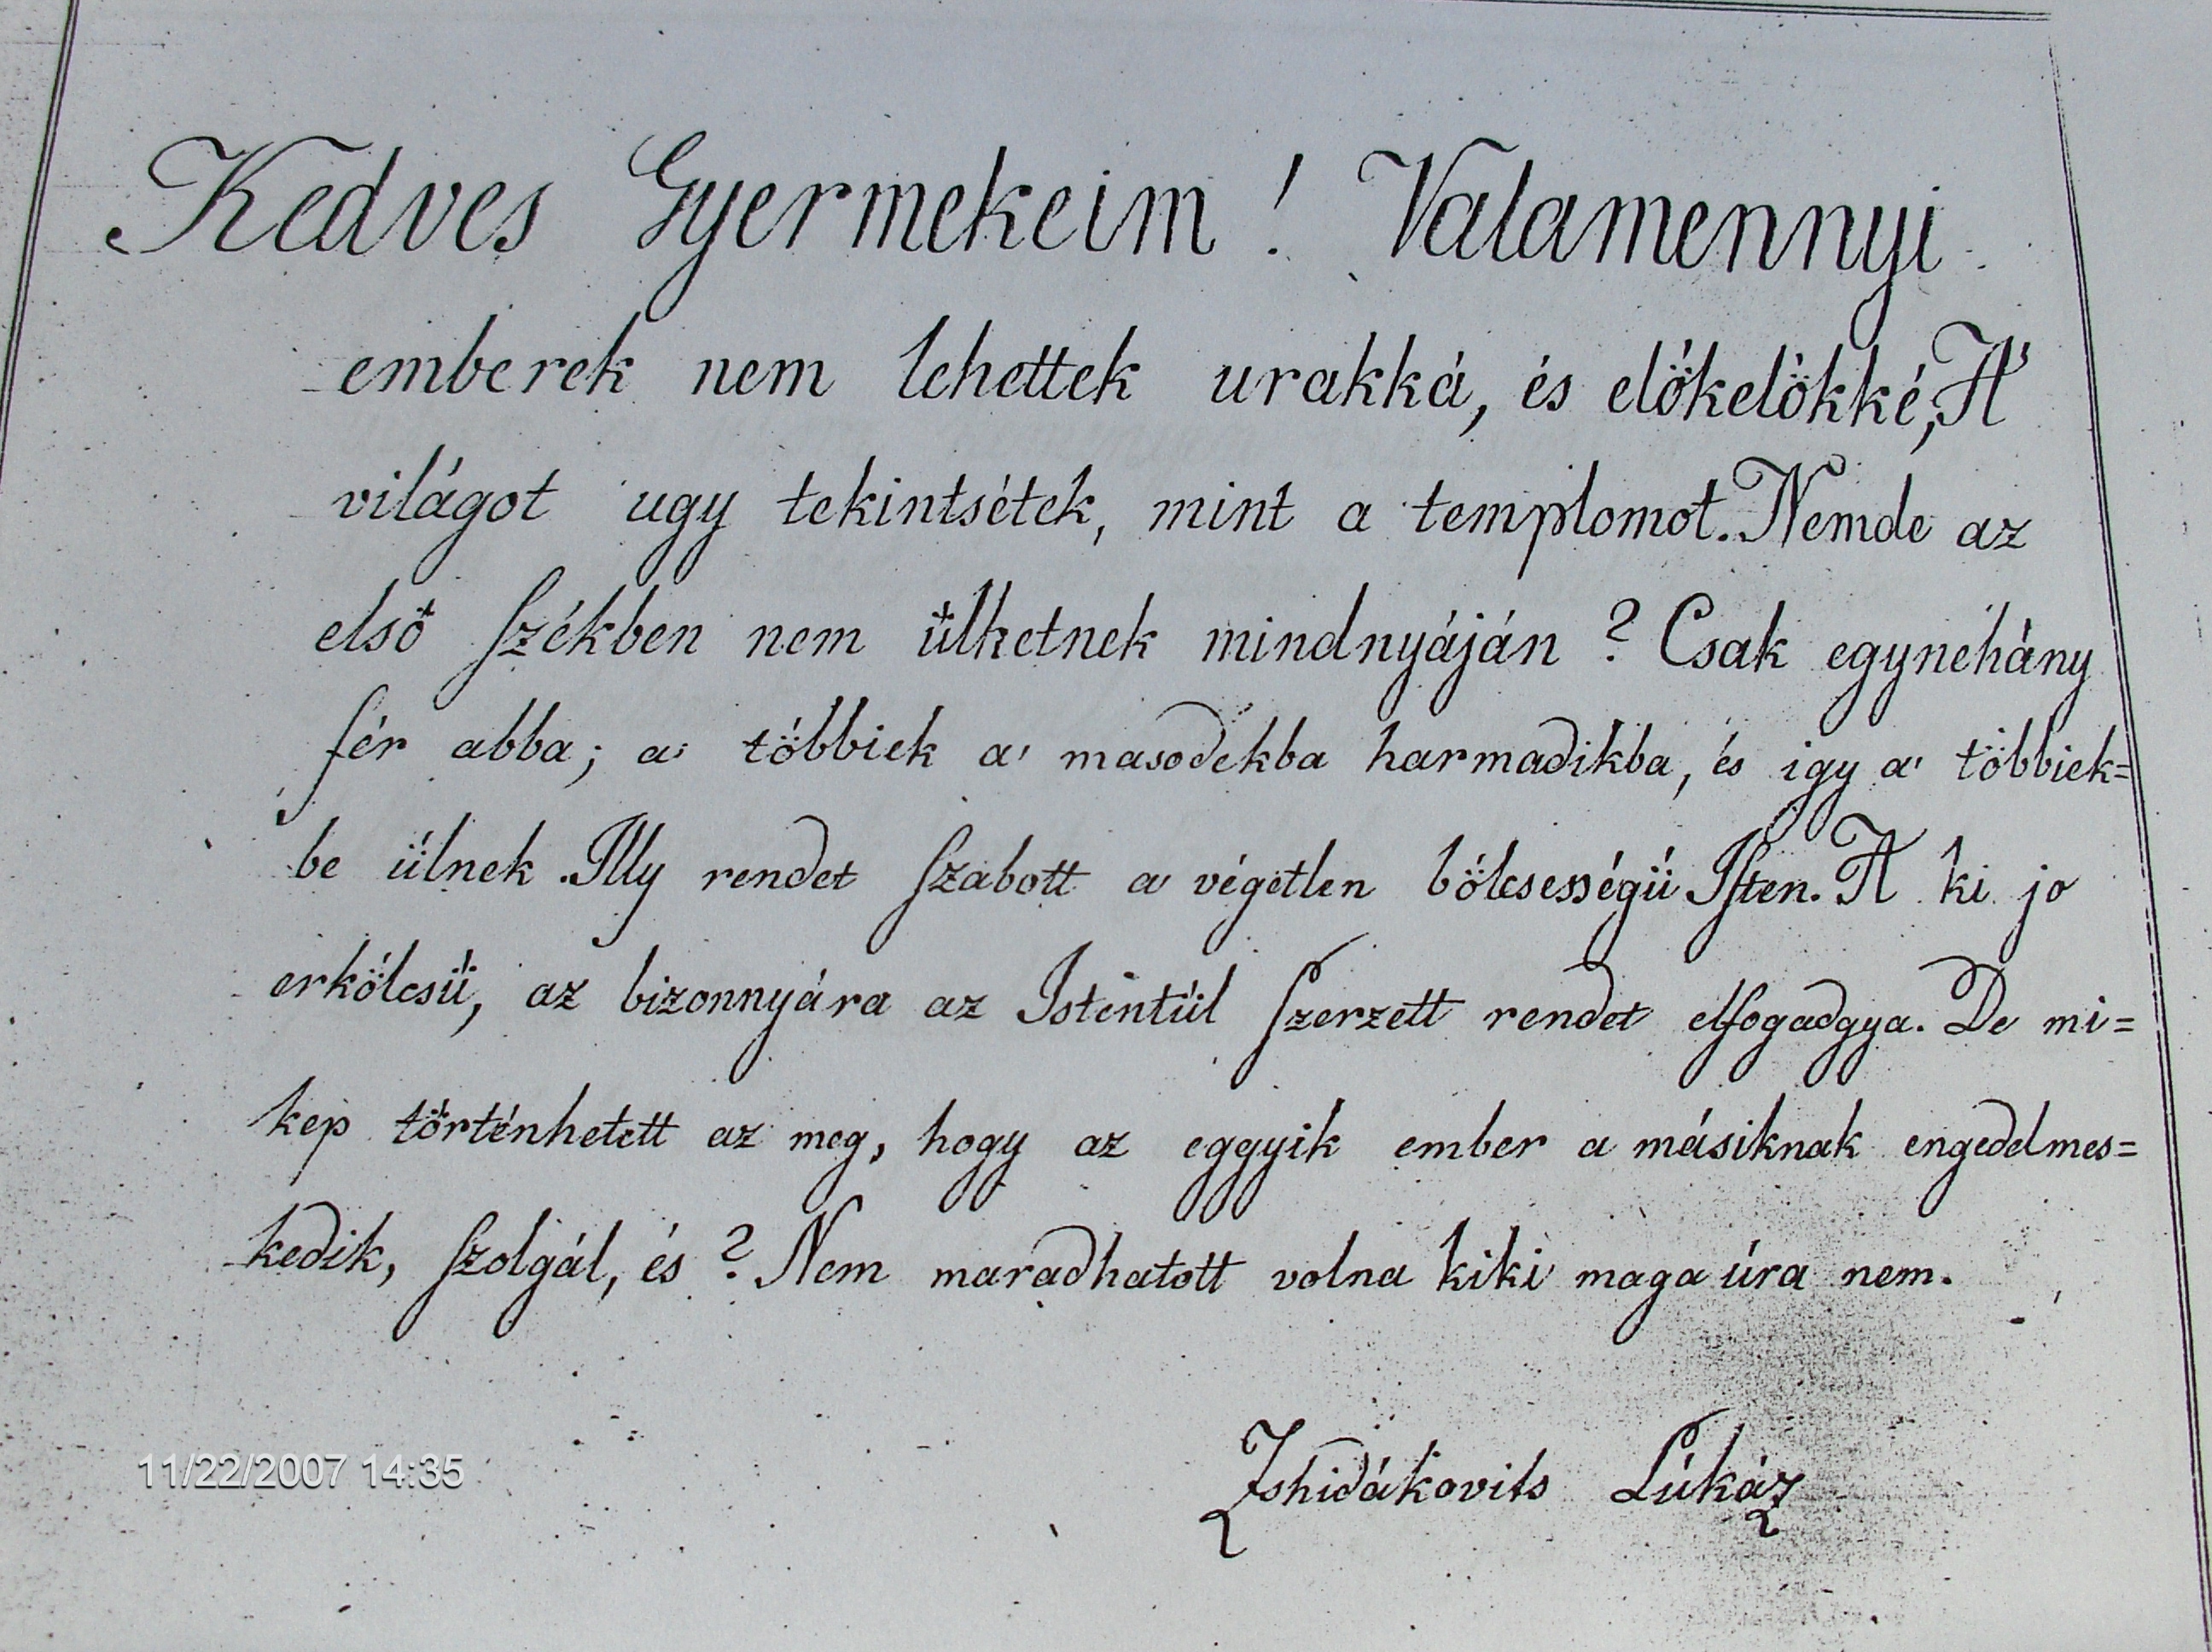 Kedves Gyermekeim! Valamennyi
emberek nem lehettek urakká, és elökelökké, A'
világot ugy tekintsétek, mint a templomot. Nemde az
elsö székben nem ülhetnek mindnyáján? Csak egynehány
fér abba; a' többiek a' masodekba harmadikba, és igy a' többiek=
be ülnek. Illy rendet szabott a végetlen bölcsességü Isten. A ki jo
erkölcsü, az bizonnyára az Istentül szerzett rendet elfogadgya. De mi=
kep történhetett az meg, hogy az eggyik ember a másiknak engedelmes=
kedik, szolgál, és? Nem maradhatott volna kiki maga úra nem.
Zshidákovits Lúkáz
11/22/2007 14:35